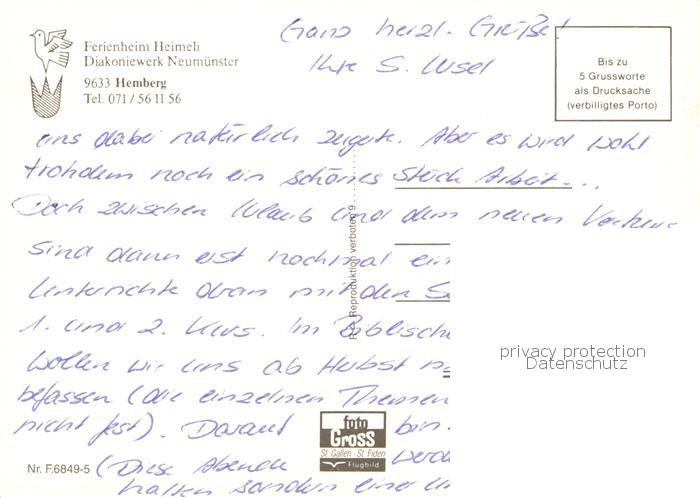 Ganz herzl. Grüße!
Ihre S.
Ferienheim Heimeli
Diakoniewerk Neumünster
9633 Hemberg
Tel. 071 / 56 11 56
Bis zu
5 Grussworte
als Drucksache
(verbilligtes Porto)
uns dabei natürlich zeigte. Aber es wird wohl
trotzdem noch ein schönes Stück Arbeit...
Doch zwischen Urlaub und dem neuen
sind dann erst nochmal ein
Unterrichte dran mit den
1. und 2. Kurs. Im Biblische
wollen wir uns ab Herbst
befassen (die einzelnen Themen
nicht fest). Darauf bin
(Diese Abende werd
halten sondern einer
Reproduktion verboten 9
privacy protection
Datenschutz
foto
Gross
St. Gallen · St. Fiden
Flugbild
Nr. F.6849-5